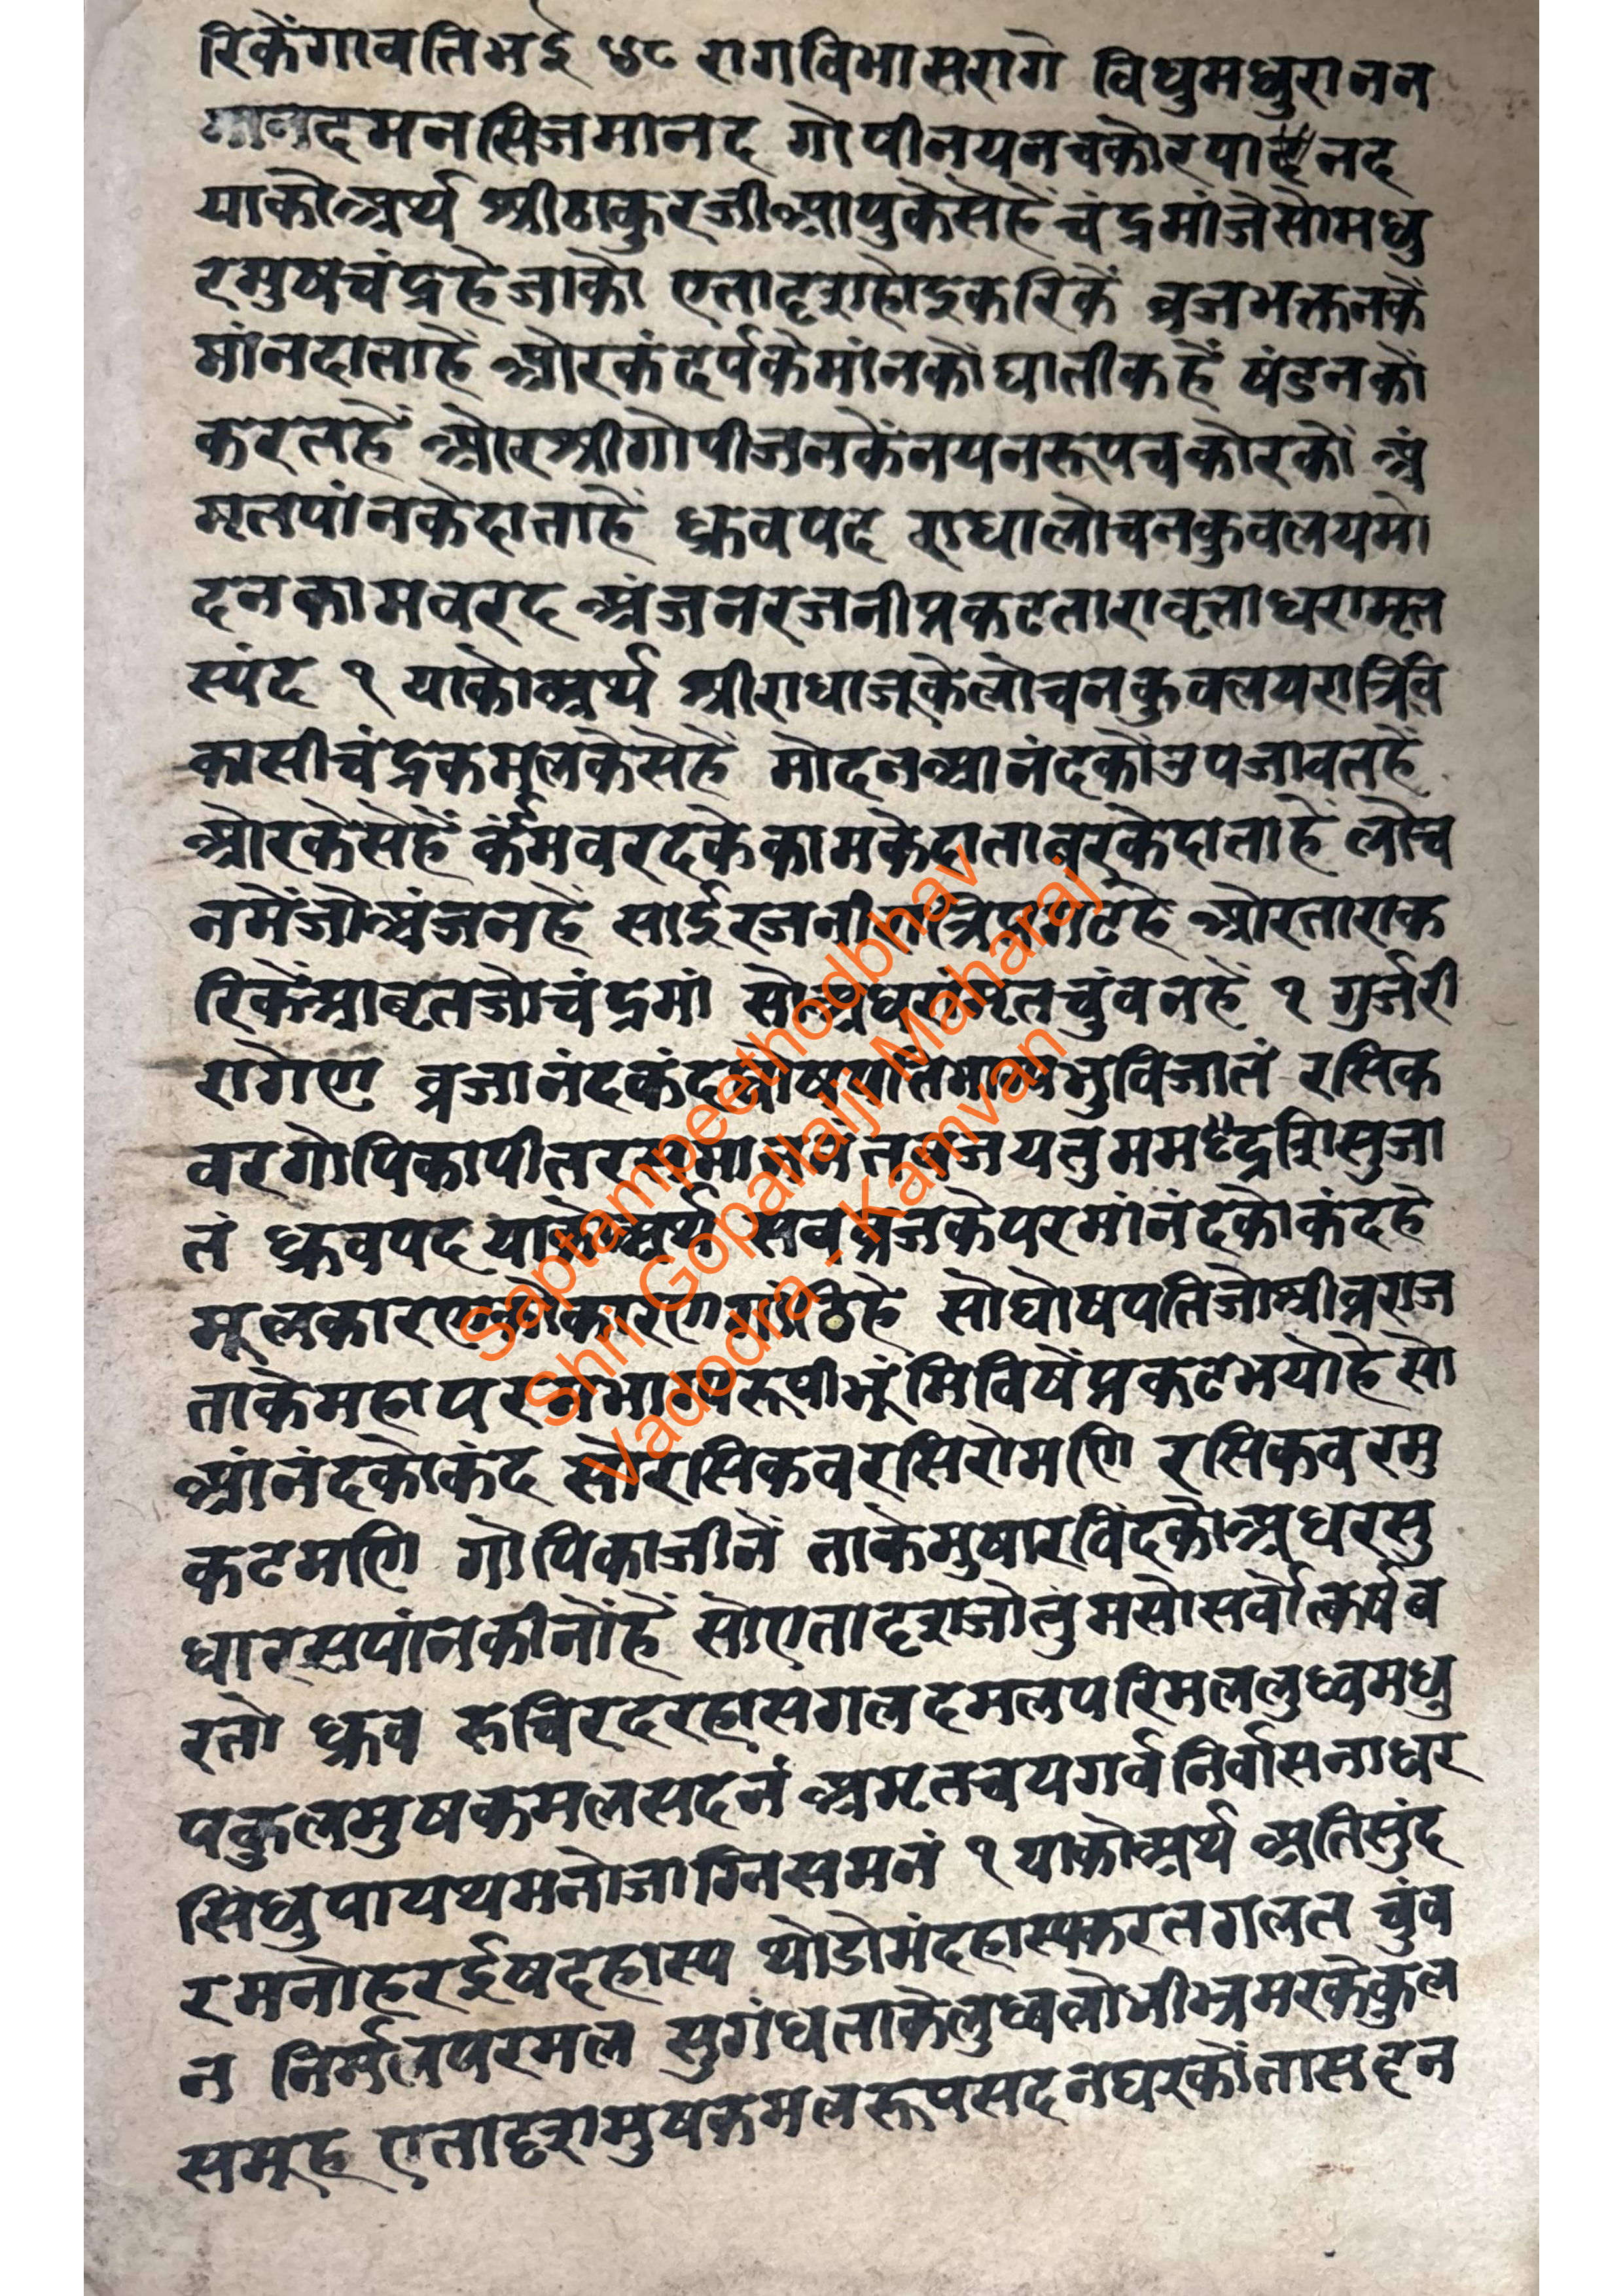 रिकेंगावतिभई ५८ रागविभासरागे विधुमधुरानन
मानदमनसिजमानद गोपीनयनचकोरपा नद
याकोअर्थ श्रीठाकुरजीआपुकेसेहें चंद्रमांजेसोमधु
रमुषचंद्रहेजाको एतादृशहोइकरिकें व्रजभक्तनकें
मांनदाताहें ओरकंदर्पकेमांनकोंघातीकहें षंडनकों
करतहें ओरश्रीगोपीजनकेंनयनरूपचकोरकों अं
मृतपांनकेदाताहें ध्रुवपद राधालोचनकुवलयमो
दनकामवरद अंजनरजनीप्रकटतारावृताधरामृत
स्पंद १ याकोअर्थ श्रीराधाजूकेलोचनकुवलयरात्रिवि
कासीचंद्रकमुलकेसेहें मोदनआनंदकोंउपजावतहें
ओरकेसेहें कंमवरदकेकामकेदाताबरकेदाताहें लोच
नमेंजोअंजनहें साईरजनीरात्रिप्रगटहे ओरताराक
रिकेंआवृतजोचंद्रमां सोअधरांमृतचुंवनहें १ गुर्जरी
रागेण व्रजानंदकंदघोषपतिभाग्यभुविजातं रसिक
वरगोपिकापीतरसमाननं तवजयतुमम दृशिसुजा
तं ध्रुवपद याकोअर्थ सबव्रजकेपरमांनंदकोकंदहे
मूलकारण कारण गांठिहे सोघोषपतिजोश्रीव्रराज
ताकेमहापरमभाग्यरूपीभूंमिविषेंप्रकटभयोहेसो
आंनंदकोकंद सोरसिकवरसिरोमणि रसिकवरमु
कटमणि गोपिकाजीनें ताकेमुषारविंदकोअधरसु
धारसपांनकीनोंहें सोएतादृशजोतुमसोसर्वोत्कर्षव
रतो ध्रुव रुचिरदरहासगलदमलपरिमललुध्वमधु
पकुलमुषकमलसदनं अमृतचयगर्वनिर्वासनाधर
सिंधुपाययमनोजाग्निसमनं १ याकोअर्थ अतिसुंद
रमनोहरईषदहास्य थोडोमंदहास्यकरतगलत चुंव
न निर्मलपरमल सुगंधताकेलुध्वलोभीभ्रमरकेकुल
समूह एतादृशमुषकमलरूपसदनघरकोंतासहन